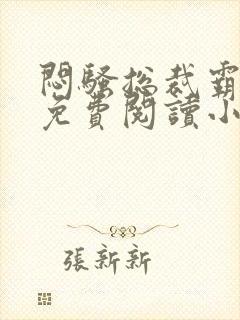 悶騷總裁霸
免費閱讀小
張新新